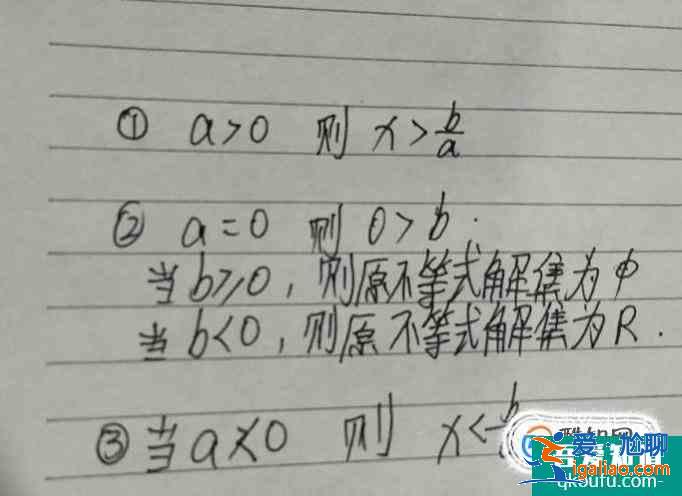 ① a>0 则 x>b/a
② a=0 则 0>b.
当b≥0,则原不等式解集为φ
当b<0,则原不等式解集为R.
③ 当a<0 则 x<
爱·尴聊
jgaliao.com
qkoufu.com